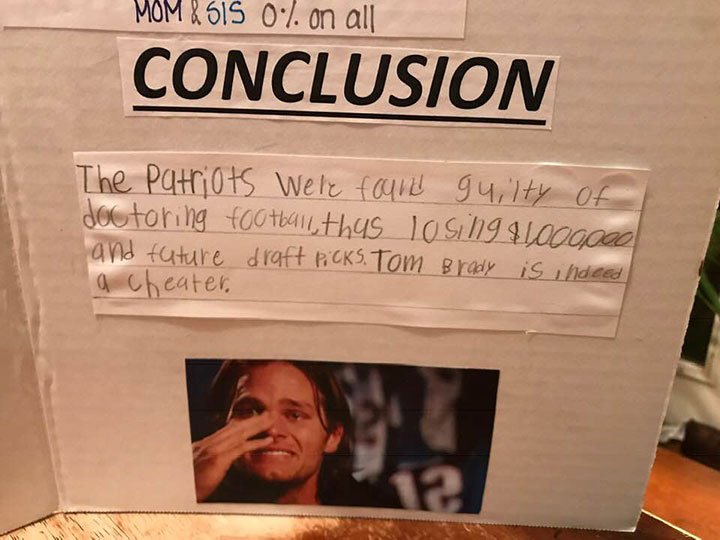 MOM & SIS 0% on all
CONCLUSION
The Patriots were found guilty of
doctoring football, thus losing $1,000,000
and future draft picks. Tom Brady is indeed
a cheater.
12